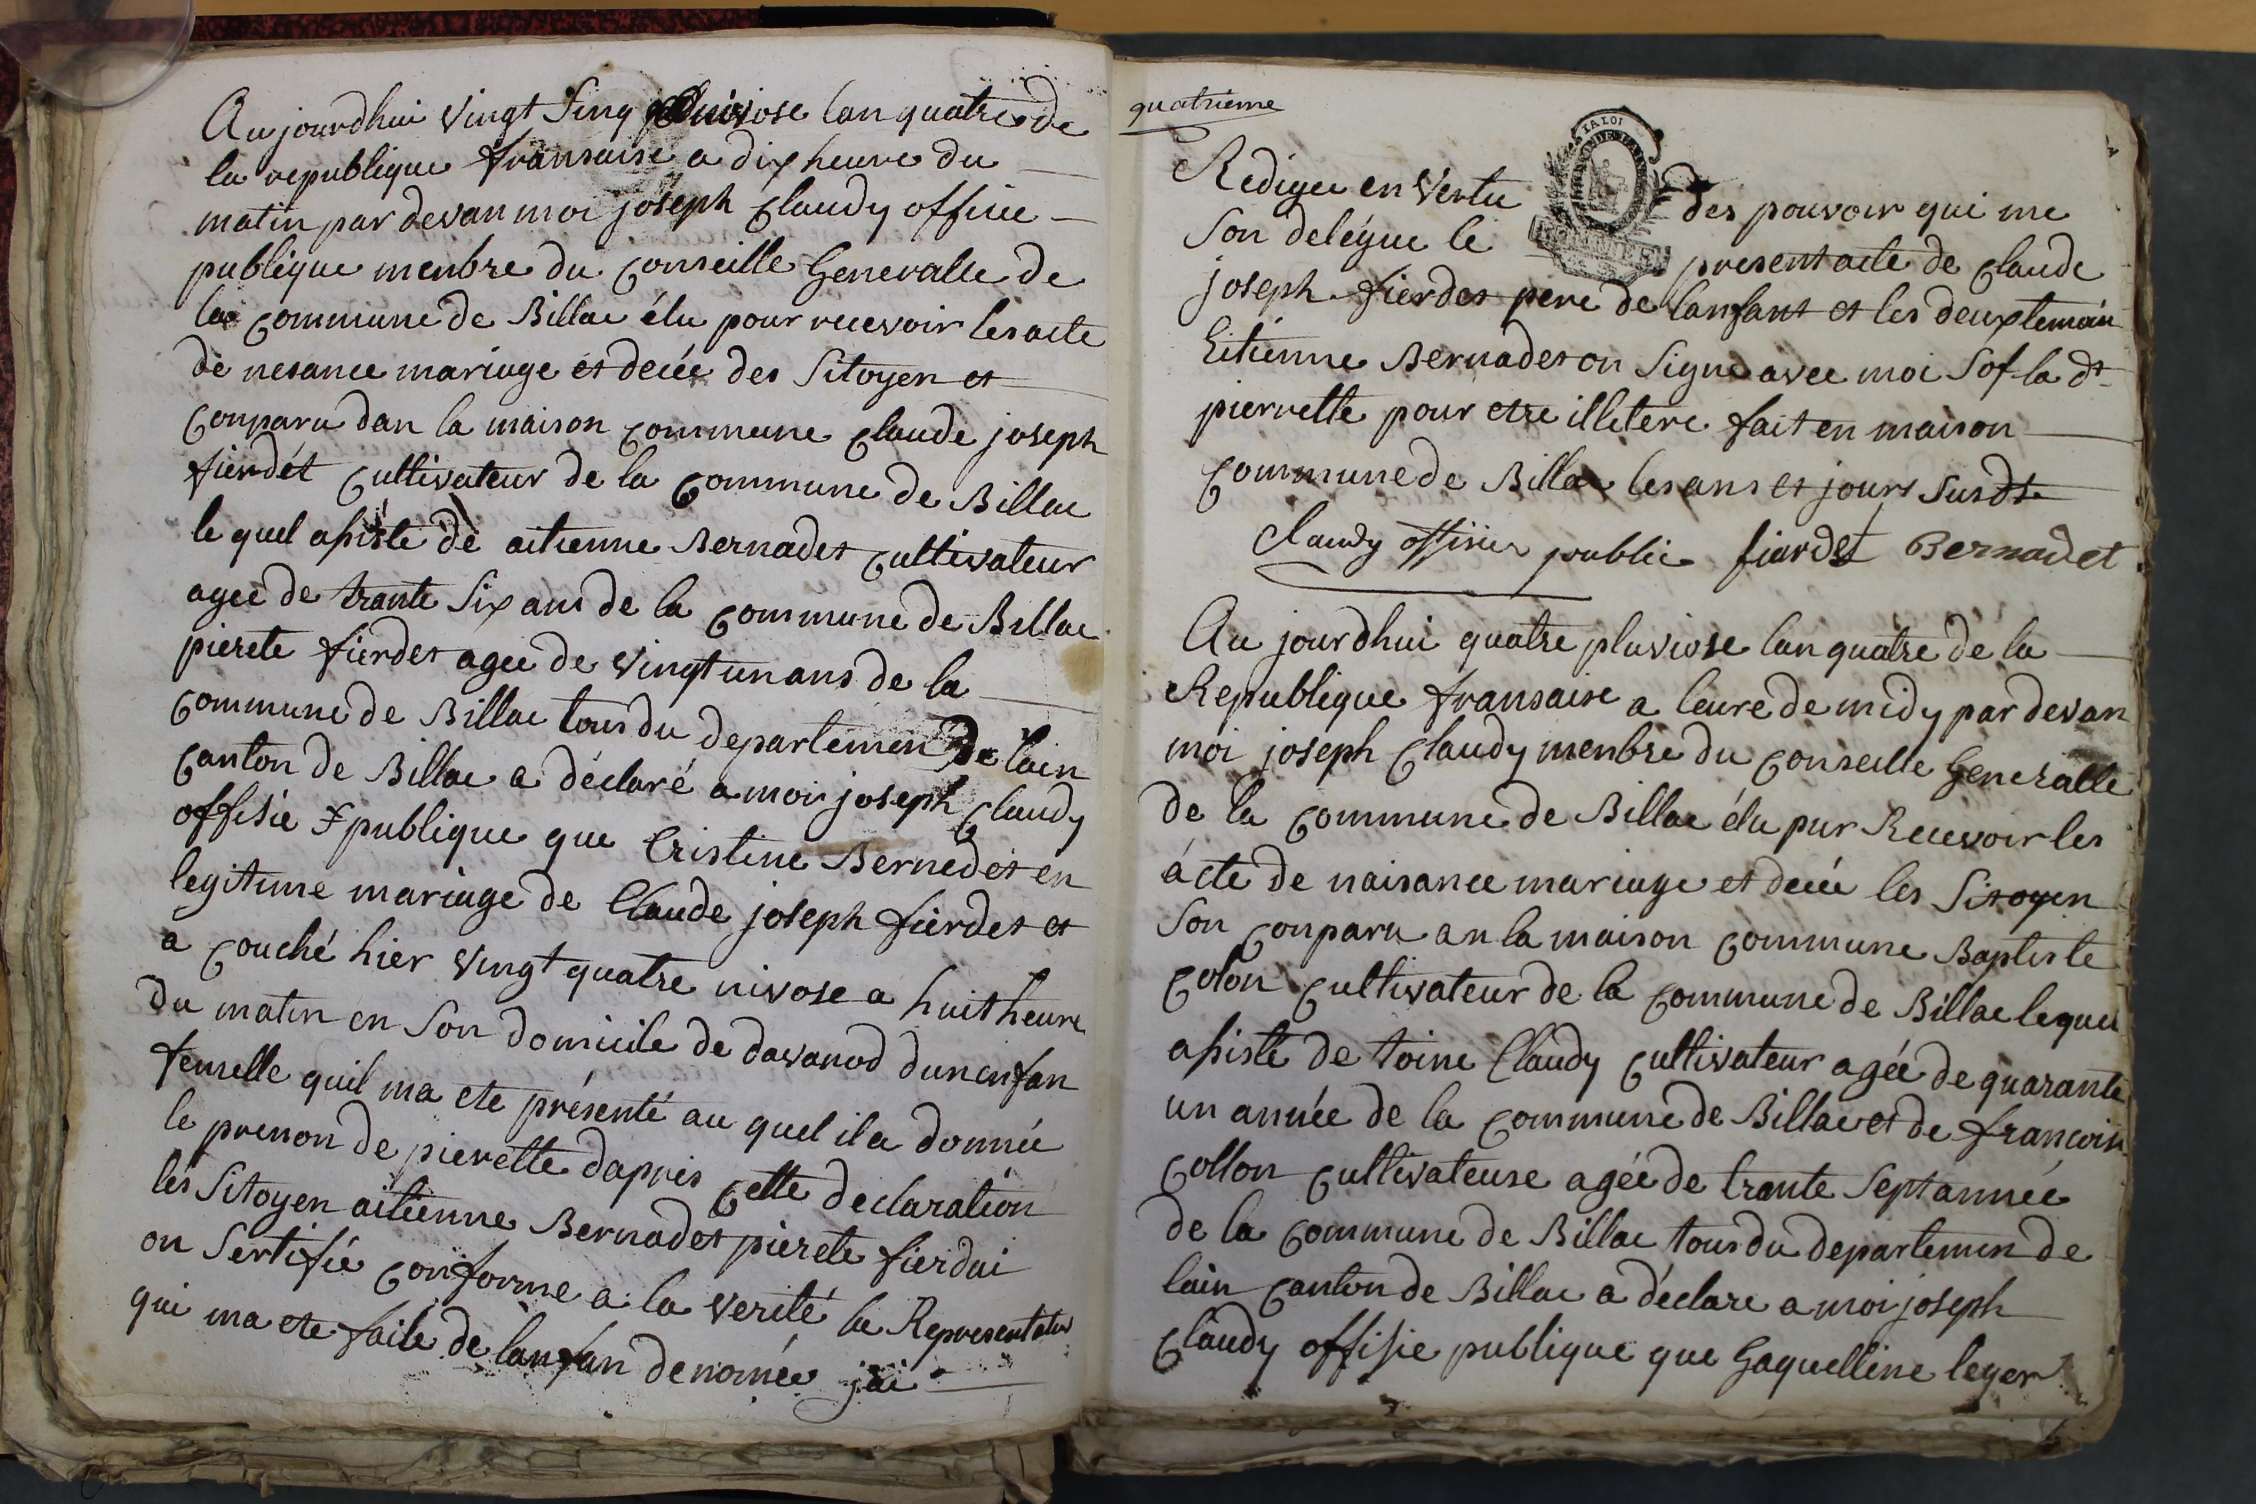 Au jourdhui vingt sinq nivose lan quatre de
la republique fransaise a dix heure du
matin par devan moi joseph Claudy officie
publique menbre du Conseille Generalle de
la Commune de Billac élu pour recevoir les acte
de nesance mariage et decée des Sitoyen et
Conparu dan la maison commune Claude joseph
fierdét Cultivateur de la Commune de Billac
le quel asiste de aitienne Bernadet Cultivateur
agee de trante Six ans de la Commune de Billac
pierete fierdet agee de vingt un ans de la
Commune de Billac tous du departemen de lain
Canton de Billac a déclaré a moi joseph Claudy
offisie publique que Cristine Bernedet en
legitime mariage de Claude joseph fierdet et
a Couché hier vingt quatre nivose a huit heure
du matin en Son domicile de davanod dun enfan
femelle quil ma ete présenté au quel il a donnée
le prenon de pierette dapris Cette declaration
les Sitoyen aitienne Bernadet pierete fierdai
on Sertifié Conforme a la verité la Representation
qui ma ete faite de lanfan denomée jai
quatrieme
LA LOI
Redigee en Vertu des pouvoir qui me
Son delégue le present acte de Claude
joseph fierdet pere de lanfant et les deux temoin
Eitienne Bernadet on Signe avec moi Sof la dt
pierrette pour etre illetere fait en maison
Commune de Billac les ans et jours Susdt
Claudy offisier public fiardet Bernadet
Au jourdhui quatre pluviose lan quatre de la
Republique fransaise a leure de midy par devan
moi joseph Claudy menbre du Conseille Generalle
de la Commune de Billac élu pur Recevoir les
acte de naisance mariage et decée les Sitoyen
Son Conparu an la maison Commune Baptiste
Colon Cultivateur de la Commune de Billac lequel
asiste de toine Claudy Cultivateur agée de quarante
un année de la Commune de Billac et de francoise
Collon Cultivateuse agée de trante Sept année
de la Commune de Billac tous du departemen de
lain Canton de Billac a déclare a moi joseph
Claudy offisie publique que Gaquelline leger